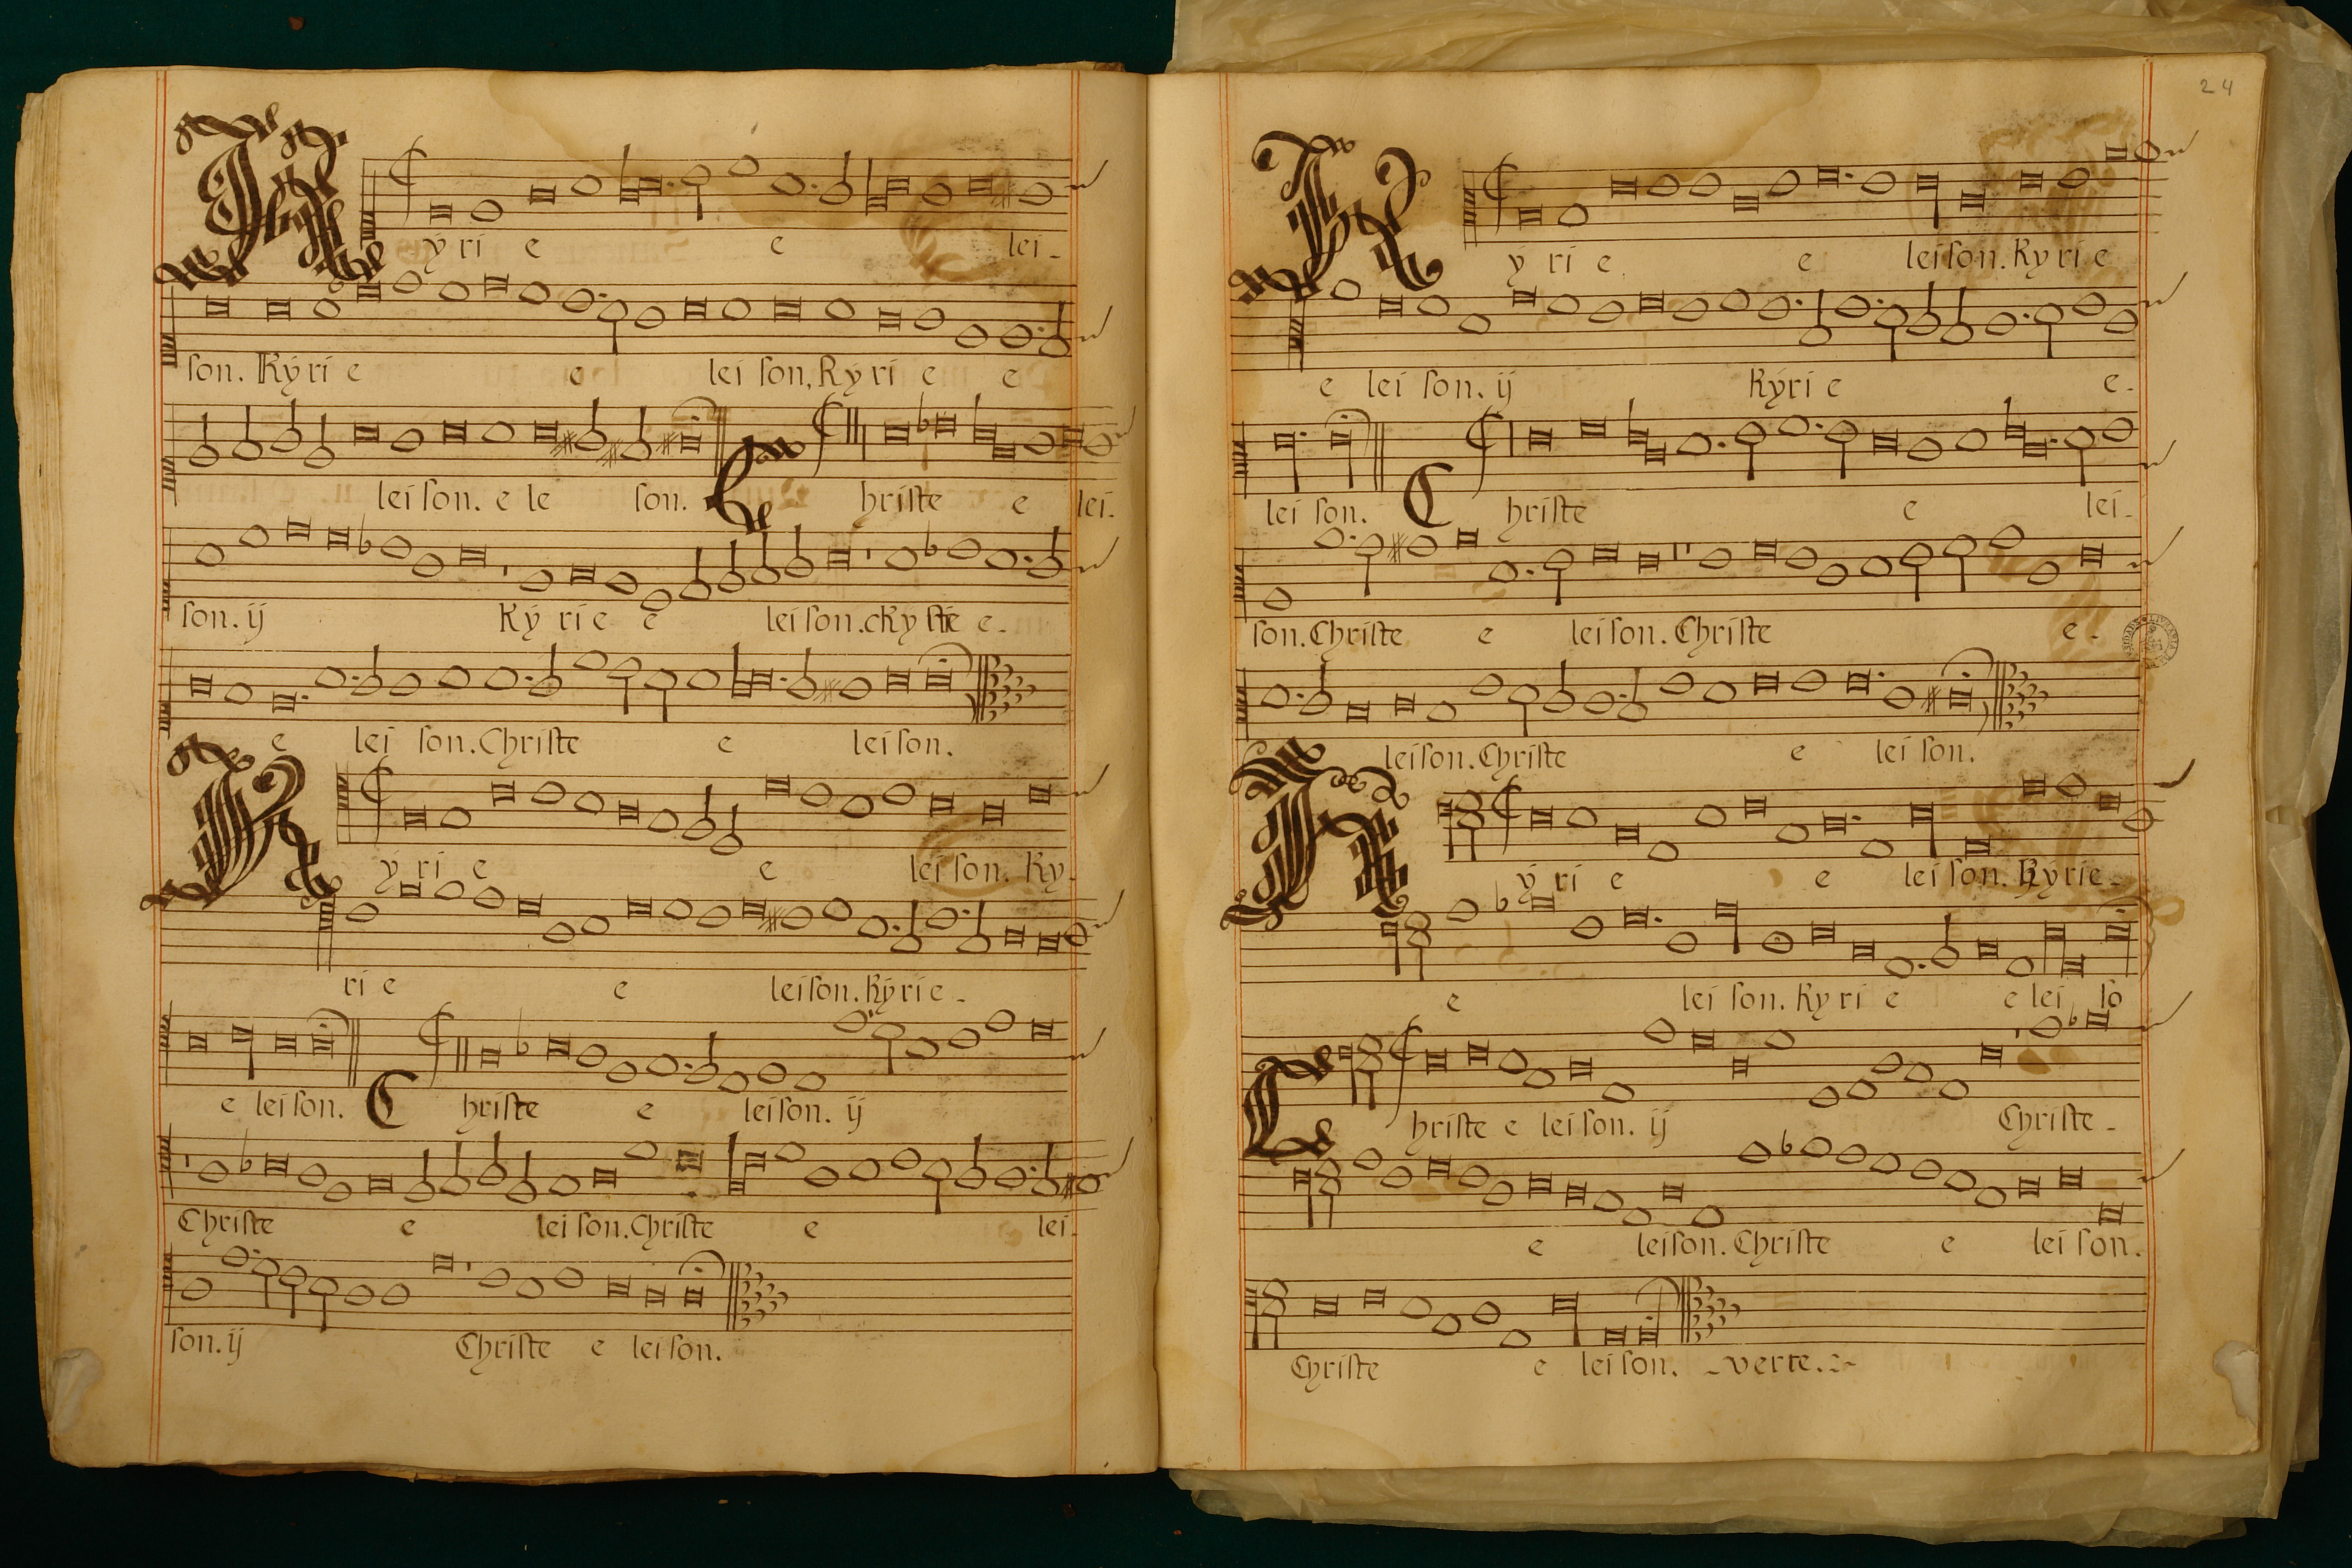 Kyri e e lei-
son. Kyri e e lei son, Kyri e e
lei son. e le son. Christe e lei-
son. ij Ky ri e e lei son. e-
e lei son. Christe e lei son.
Kyri e e lei son. Ky-
ri e e lei son. Kyri e-
e lei son. Christe e lei son. ij
Christe e lei son. Christe e lei-
son. ij Christe e lei son.
24
Ky ri e e lei son. Ky ri e
e lei son. ij Kyri e e-
lei son. Christe e lei-
son. Christe e lei son. Christe e-
lei son. Christe e lei son.
Ky ri e e lei son. Kyrie-
e lei son. Ky ri e e lei so
Christe e lei son. ij Christe-
e lei son. Christe e lei son.
Christe e lei son. verte.